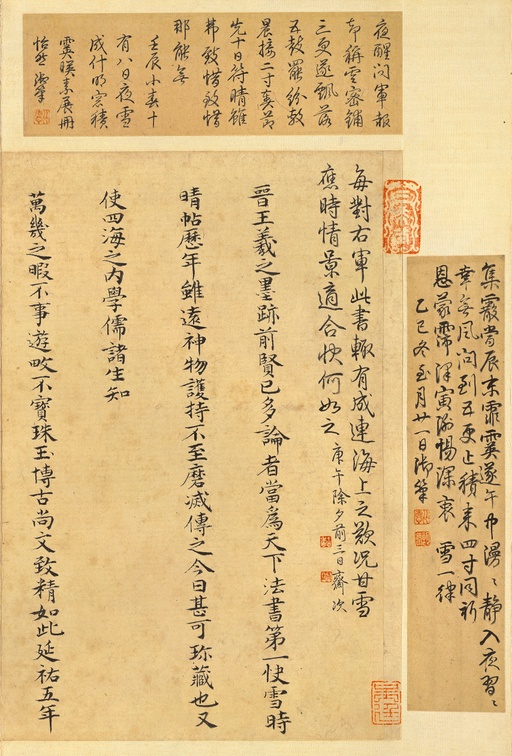 集霰當辰末霏霙遂午中漫〻靜入夜習〻
幸無風問到五更止積來四寸同祈
恩蒙霈澤寅惕深衷 雪一律
乙巳冬至月廿一日御筆
夜醒問軍報
却稱雲密鋪
三更遂飄落
五鼓罷紛敷
晨接二寸
先十日待晴雖
弗致惜致惜
那能無
壬辰小春十
有八日夜雪
成什明窓積
霙暎素展冊
怡然 御筆
每對右軍此書輙有成連海上之歎況甘雪
應時情景適合快何如之 庚午除夕前三日齋次
晉王羲之墨跡前賢已多論者當爲天下法書第一快雪時
晴帖歷年雖遠神物護持不至磨滅傳之今日甚可珎藏也又
使四海之內學儒諸生知
萬幾之暇不事遊畋不寶珠玉博古尚文致精如此延祐五年